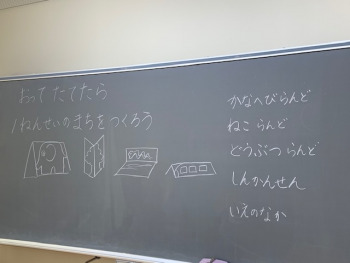 おって たてたら
1ねんせいのまちをつくろう
かなへびらんど
ねこ らんど
どうぶつ らんど
しんかんせん
いえのなか